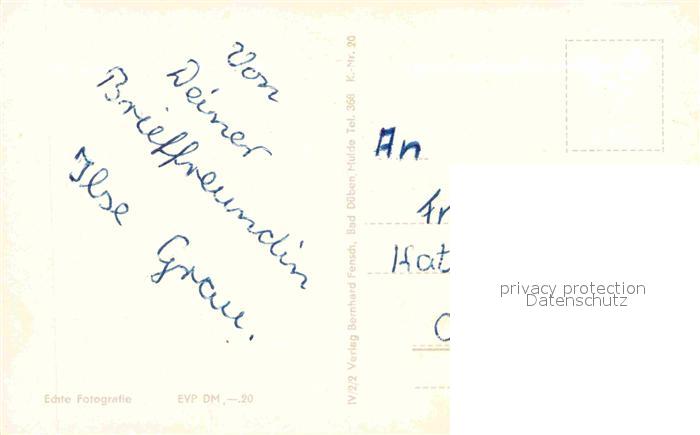 Von
Deiner
Brieffreundin
Ilse Grau.
Echte Fotografie EVP DM ,—.20
IV/2/2 Verlag Bernhard Fensch, Bad Düben, Mulde Tel. 368 K.-Nr. 20
An
Fr
Kat
privacy protection
Datenschutz